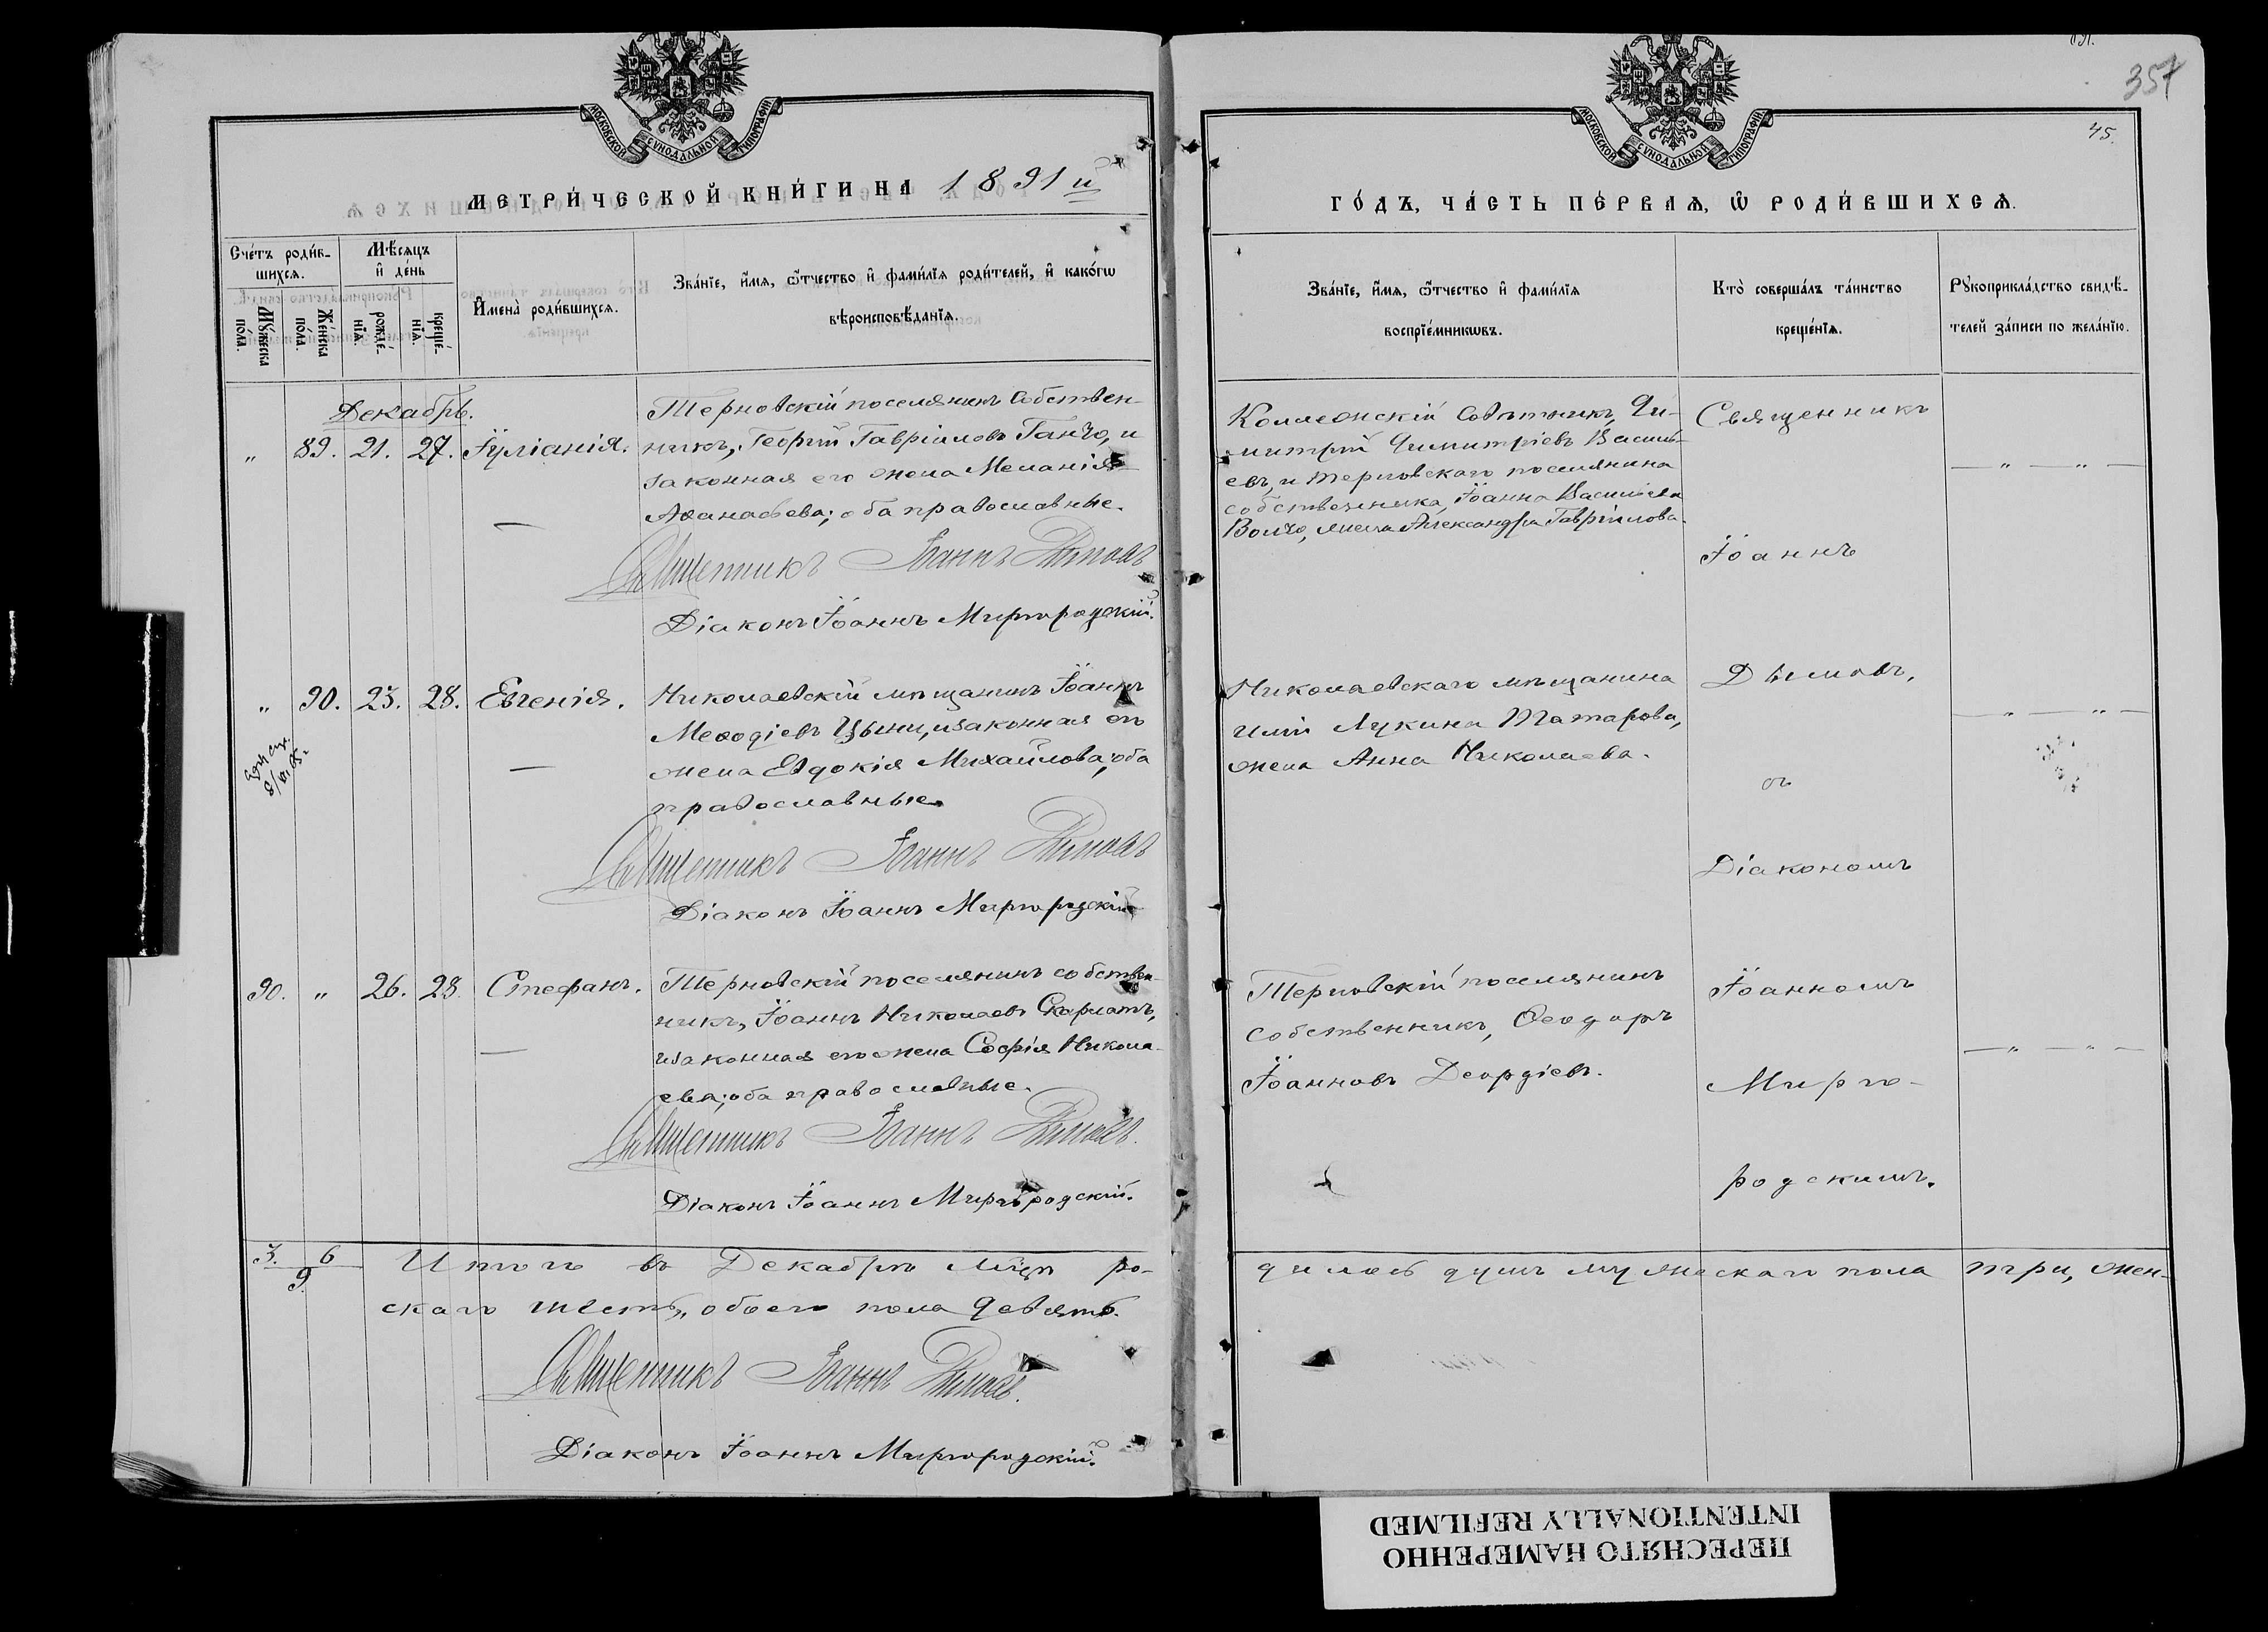 МОСКОВСКОЙ СѴНОДАЛЬНОЙ ТИПОГРАФІИ
МЕТРИ́ЧЕСКОЙ КНИ́ГИ НА 1891й
Сче́тъ роди́в-
шихсѧ.
Мꙋ́жеска
по́ла.
Же́нска
по́ла.
Мѣ́сѧцъ
и҆ де́нь
рожде́-
нїѧ.
креще́-
нїѧ.
И҆мена̀ роди́вшихсѧ.
Зва́нїе, и҆́мѧ, ѻ҆́тчество и҆ фами́лїѧ роди́телей, и҆ како́гѡ
вѣроисповѣ́данїѧ.
Декабрь.
„ 89. 21. 27. Іуліанія.
Терновскій поселянинъ собствен-
никъ, Георгій Гавріиловъ Ганчо, и
законная его жена Меланія
Аѳанасьева; оба православные.
Священникъ Іоаннъ Дѣмовъ
Діаконъ Іоаннъ Миргородскій.
„ 90. 23. 28. Евгенія.
Николаевскій мѣщанинъ Іоаннъ
Меѳодіевъ Цыни, и законная его
жена Евдокія Михайлова; оба
православные.
Священникъ Іоаннъ Дѣмовъ
Діаконъ Іоаннъ Миргородскій
90. „ 26. 28. Стефанъ.
Терновскій поселянинъ собствен-
никъ, Іоаннъ Николаевъ Скарлатъ,
и законная его жена Софія Никола-
ева; оба православные.
Священникъ Іоаннъ Дѣмовъ.
Діаконъ Іоаннъ Миргородскій.
3. 6
9.
Итого въ Декабрѣ м̃цѣ ро-
скаго шесть, обоего пола девять.
Священникъ Іоаннъ Дѣмовъ.
Діаконъ Іоаннъ Миргородскій.
357
45.
МОСКОВСКОЙ СѴНОДАЛЬНОЙ ТИПОГРАФІИ
ГО́ДЪ, ЧА́СТЬ ПЕ́РВАѦ, Ѡ҆ РОДИ́ВШИХСѦ.
Зва́нїе, и҆́мѧ, ѻ҆́тчество и҆ фами́лїѧ
воспрїе́мникѡвъ.
Кто̀ соверша́лъ та́инство
креще́нїѧ.
Рꙋкоприкла́дство свидѣ́-
телей за́писи по жела́нїю.
Коллежскій Совѣтникъ, Ди-
митрій Димитріевъ Василь-
евъ, и терновскаго поселянина
собственника, Іоанна Васильева
Волчо, жена Александра Гавріилова.
Николаевскаго мѣщанина
Иліи Лукина Татарова,
жена Анна Николаева.
Терновскій поселянинъ
собственникъ, Ѳеодоръ
Іоанновъ Деордіевъ.
Священникъ
Іоаннъ
Дѣмовъ,
съ
Діакономъ
Іоанномъ
Мирго-
родскимъ.
дилось душъ мужескаго пола три, жен-
ПЕРЕСНЯТО НАМЕРЕННО
INTENTIONALLY REFILMED